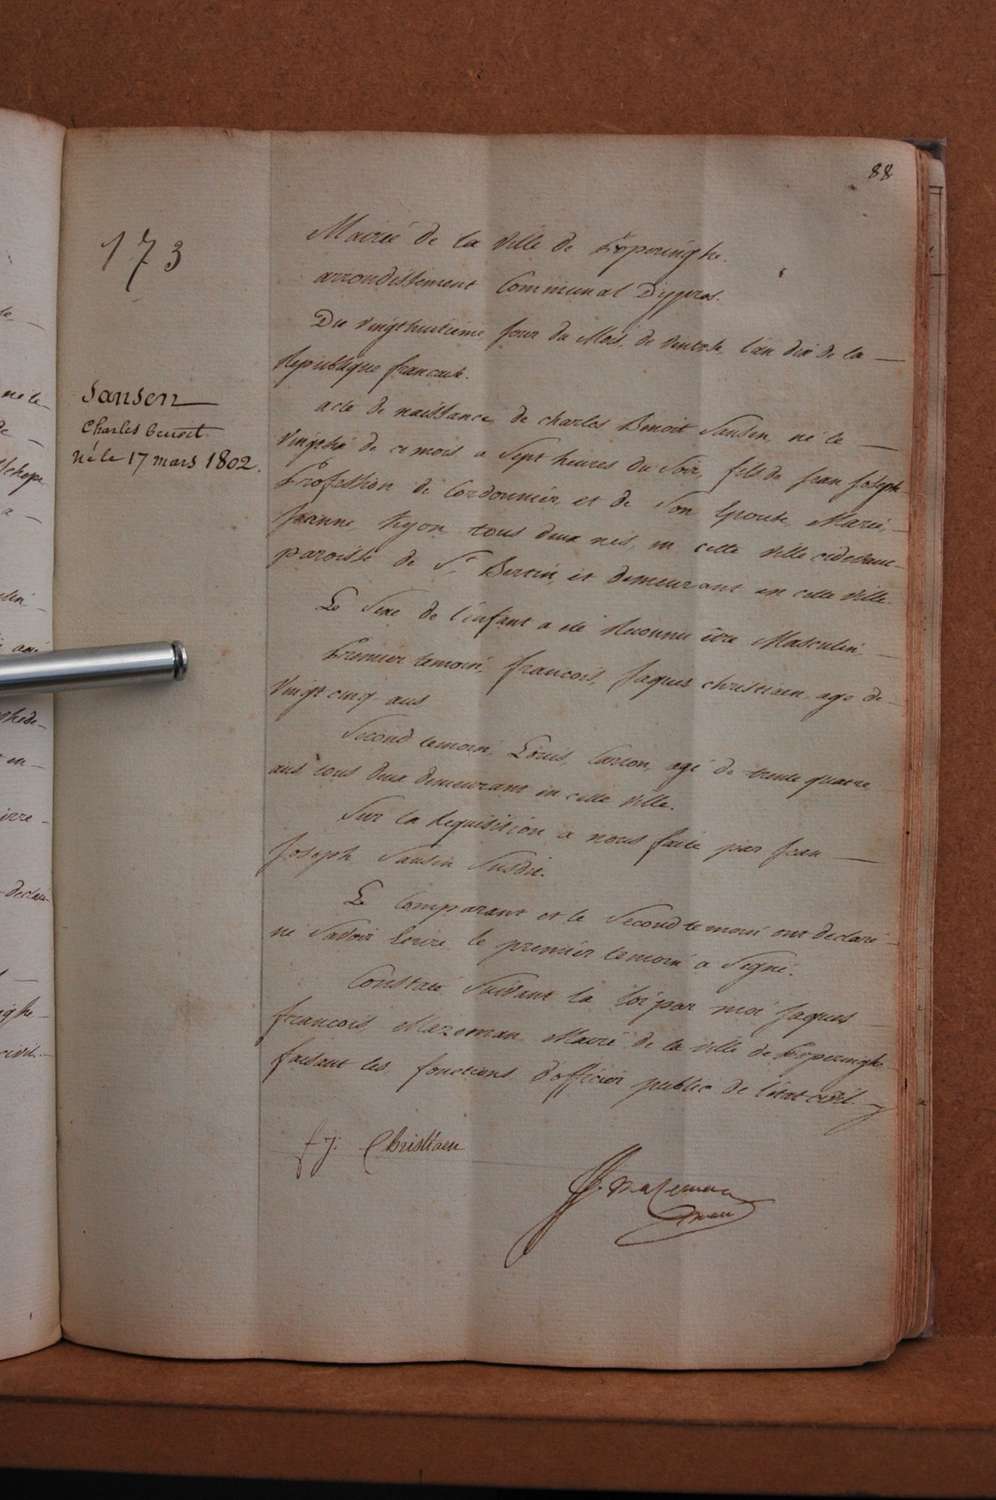 88
173
Mairie de la ville de Poperinghe.
arrondissement Communal D'ypres.
Du vingthuitieme jour du Mois de Ventose, l'an dix de la
Republique francaise.
Sansen
Charles benoit
né le 17 mars 1802.
acte de naissance de charles Benoit Sansen, né le
vingtsix de ce mois a Sept heures du Soir, fils de Jean Joseph
Profession de Cordonnier, et de Son Epouse, Marie,
Jeanne tous deux nés, en cette ville cidevant
paroisse de St. Bertin, et demeurant en cette ville.
Le Sexe de l'enfant a eté Reconnu être Masculin
Premier temoin, francois, Jaques christiaen, age de
vingt cinq ans
Second temoin, Louis, Carton, agé de trente quatre
ans tous deux demeurant en cette ville.
Sur la Requisition a nous faite par Jean
Joseph Sansen Susdit.
Le Comparant et le Second temoin ont declaré
ne Savoir Ecrire, le premier temoin a Signé.
Constaté Suivant la loi par moi Jaques
francois Mazeman Maire de la ville de Poperinghe
faisant les fonctions d'officier public de l'état civil.
f j. Christiaen
J. Mazeman